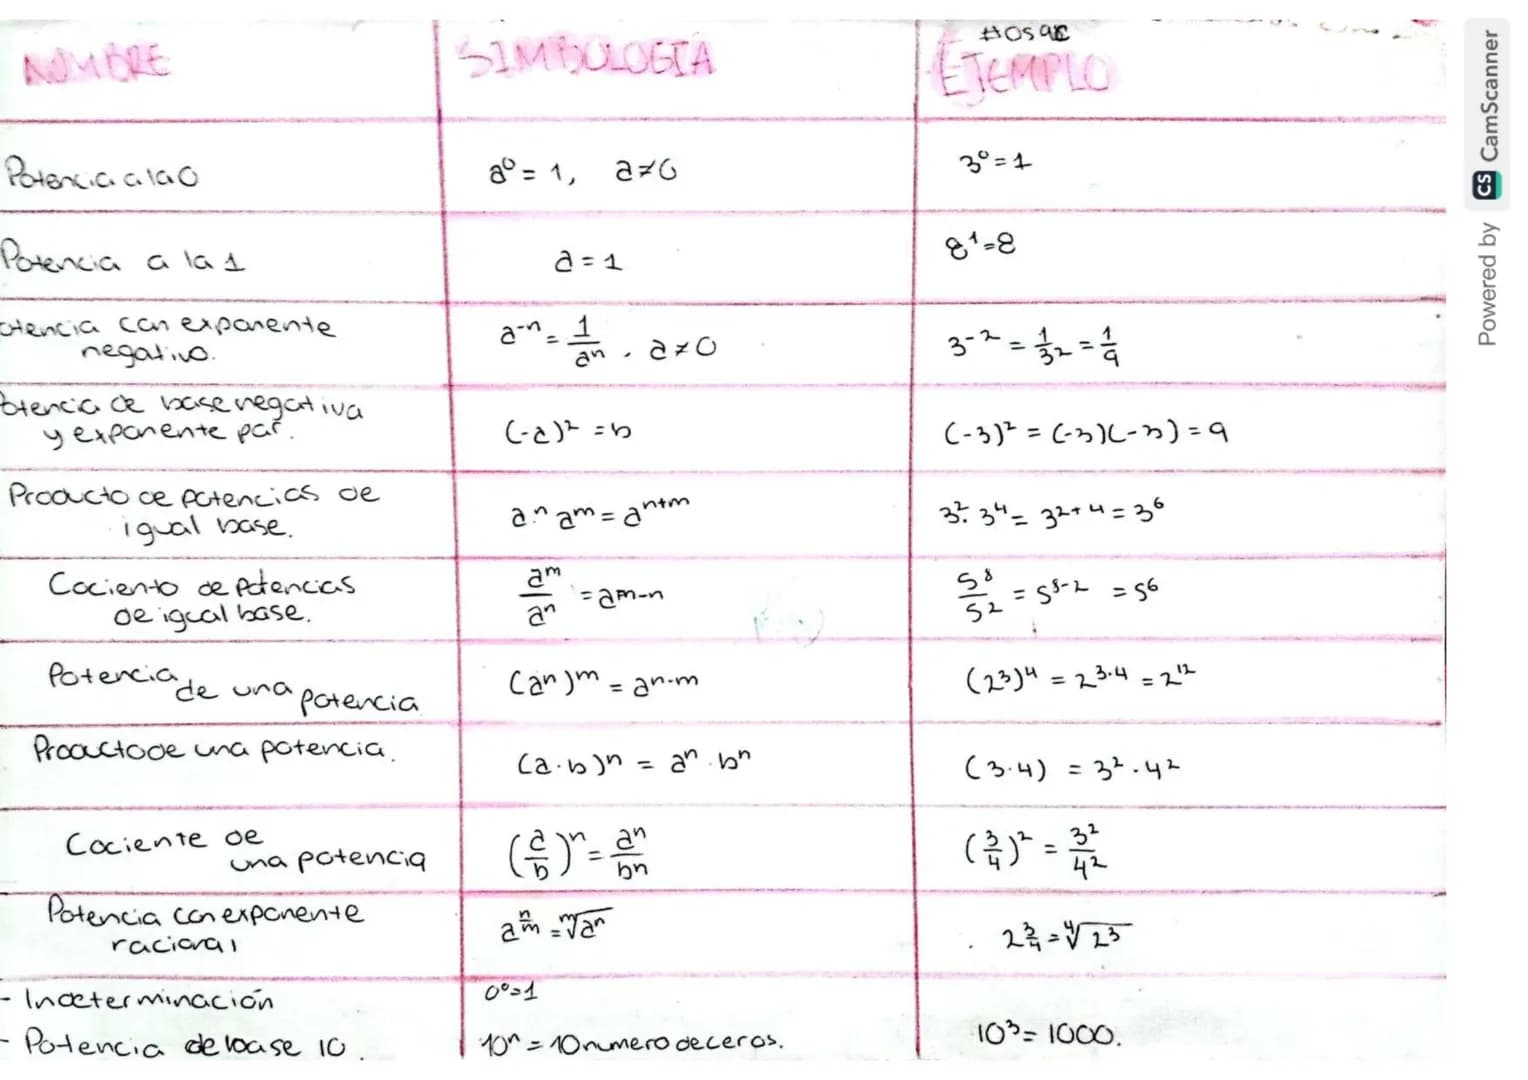 NOMBRE SIMBOLOGÍA EJEMPLO
Potencia a la 0 a⁰ = 1, a≠0 3⁰ = 1
Potencia a la 1 a = 1 8¹=8
otencia con exponente negativo. a⁻ⁿ = 1/aⁿ . a≠0 3⁻² = 1/3² = 1/9
otencia de base negativa y exponente par. (-a)² = b (-3)² = (-3)(-3) = 9
Producto de potencias de igual base. a.ⁿ aᵐ = aⁿ⁺ᵐ 3². 3⁴ = 3²⁺⁴ = 3⁶
Cociento de Potencias de igual base. aᵐ/aⁿ = aᵐ⁻ⁿ 5⁸/5² = 5⁸⁻² = 5⁶
Potencia de una potencia (aⁿ)ᵐ = aⁿ·ᵐ (2³)⁴ = 2³·⁴ = 2¹²
Producto de una potencia. (a·b)ⁿ = aⁿ · bⁿ (3·4) = 3² · 4²
Cociente de una potencia (a/b)ⁿ = aⁿ/bⁿ (3/4)² = 3²/4²
Potencia con exponente racional a^(n/m) = ᵐ√aⁿ 2^(3/4) = ⁴√2³
- Indeterminación 0⁰=1
- Potencia de base 10. 10ⁿ = 10 numero de ceros. 10³ = 1000.
Powered by CS CamScanner